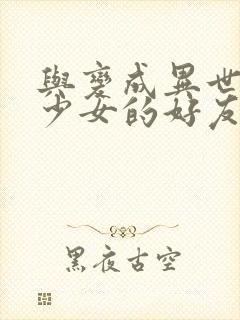 與變成異世
少女的好友
黑夜古空